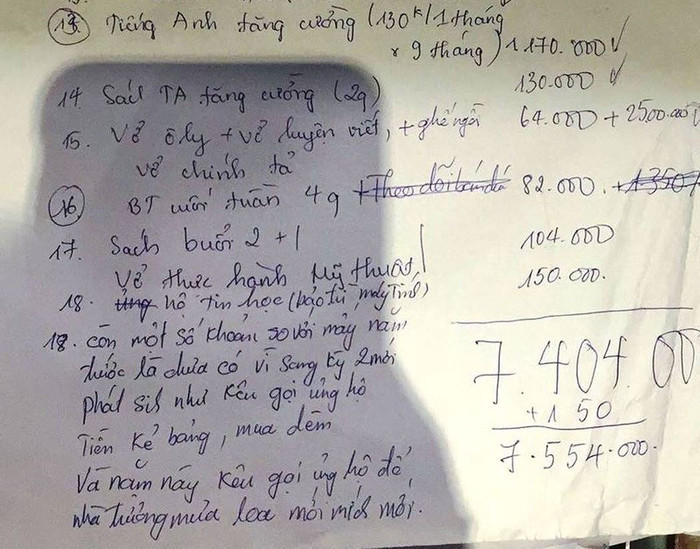 13. Tiếng Anh tăng cường (130k/1 tháng
x 9 tháng) 1.170.000 ✓
14. Sách TA tăng cường (2q) 130.000 ✓
15. Vở ôly + vở luyện viết, + ghế ngồi 64.000 + 2500.000
vở chính tả
16 BT cuối tuần 4q 82.000.
17. Sách buổi 2 + 1 104.000
Vở thực hành Mỹ thuật 150.000.
18. hộ tin học (bảo trì máy tính)
18. còn một số khoản so với mấy năm
trước là chưa có vì sang kỳ 2 mới
phát sih như kêu gọi ủng hộ
Tiền kẻ bảng, mua đêm
Và năm này kêu gọi ủng hộ để
nhà trường mua loa mới mich mới.
7.404.00
+ 150
7.554.000.